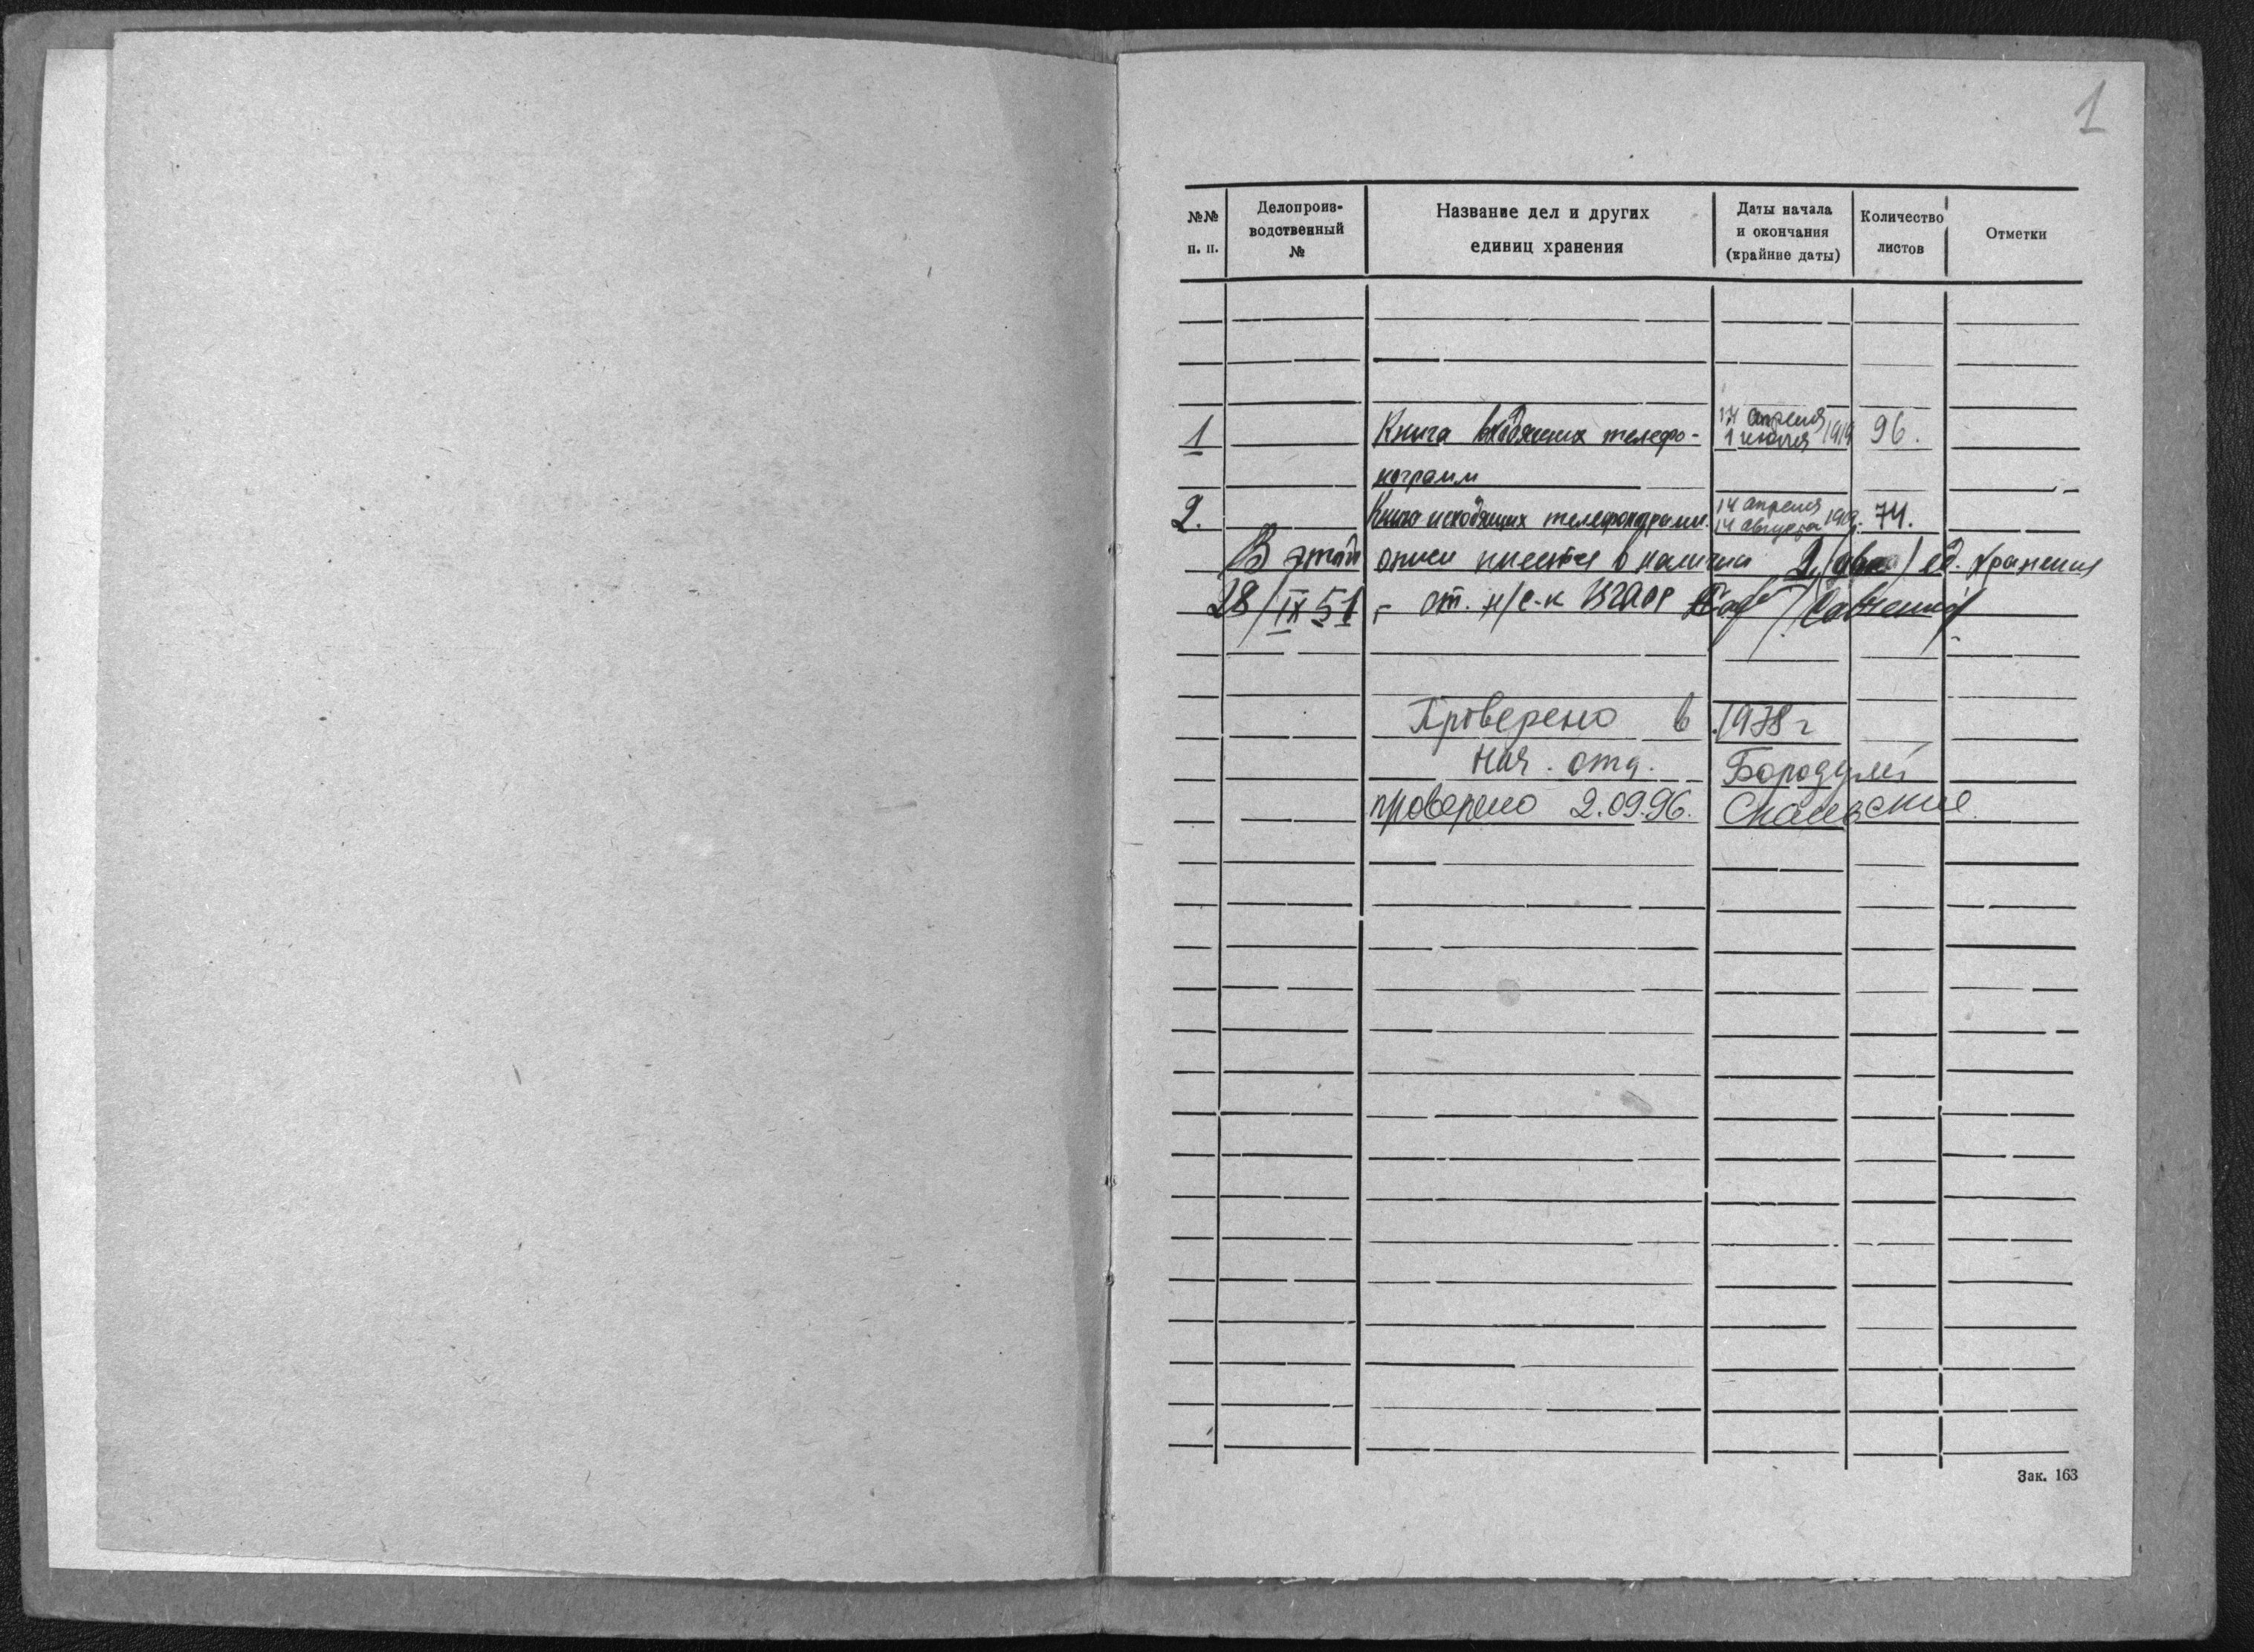 1
№№ п. п. Делопроиз-водственный № Название дел и других единиц хранения Даты начала и окончания (крайние даты) Количество листов Отметки
1 Книга входящих телефо- 14 апреля 1 июля 1919 96.
нограмм
2. Книга исходящих телефонограмм. 14 апреля 14 августа 1919г. 74.
В этой описи имеется в наличии 2 /два/ ед. хранения
28/IX 51 г от. н/с-к
Проверено в 1978 г
Нач. отд.
проверено 2.09.96.
Зак. 163